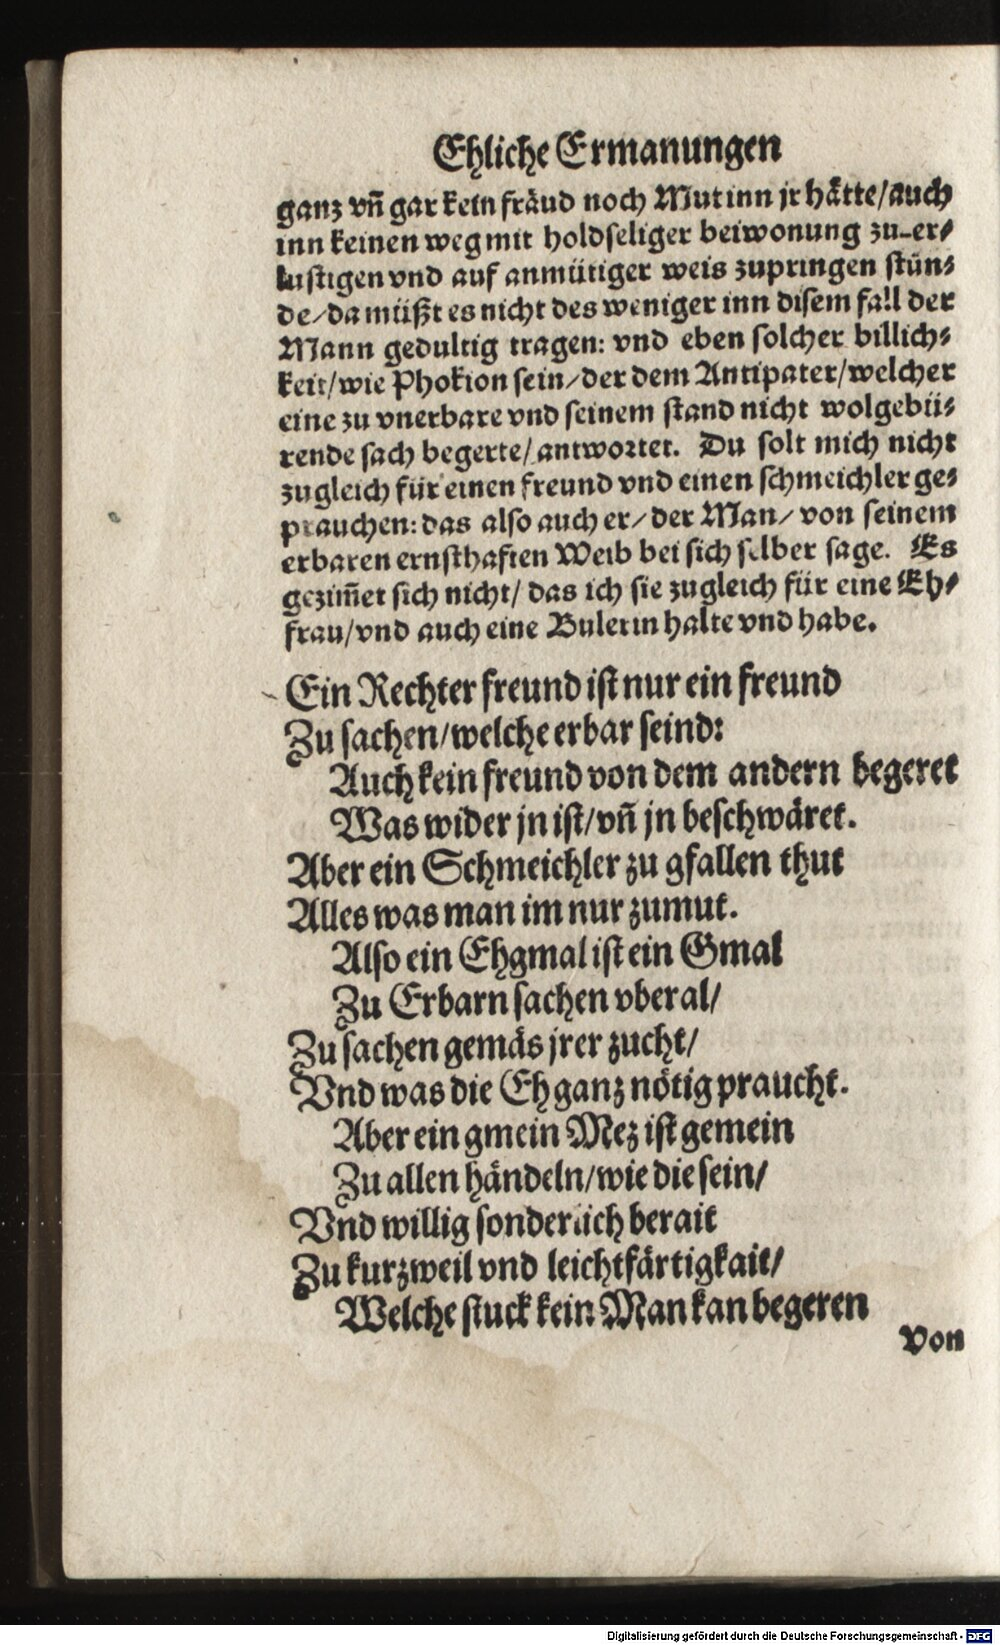 Ehliche Ermanungen
ganz vn̄ gar kein fräud noch Mut inn jr hätte/auch
inn keinen weg mit holdseliger beiwonung zu-er⸗
lustigen vnd auf anmütiger weis zupringen stün⸗
de/da müßt es nicht des weniger inn disem fall der
Mann gedultig tragen: vnd eben solcher billich⸗
keit/wie Phokion sein/der dem Antipater/welcher
eine zu vnerbare vnd seinem stand nicht wolgebü⸗
rende sach begerte/antwortet. Du solt mich nicht
zugleich für einen freund vnd einen schmeichler ge⸗
prauchen: das also auch er/der Man/von seinem
erbaren ernsthaften Weib bei sich selber sage. Es
gezim̄et sich nicht/das ich sie zugleich für eine Eh⸗
frau/vnd auch eine Bulerin halte vnd habe.
Ein Rechter freund ist nur ein freund
Zu sachen/welche erbar seind:
Auch kein freund von dem andern begeret
Was wider jn ist/vn̄ jn beschwäret.
Aber ein Schmeichler zu gfallen thut
Alles was man im nur zumut.
Also ein Ehgmal ist ein Gmal
Zu Erbarn sachen vberal/
Zu sachen gemäs jrer zucht/
Vnd was die Eh ganz nötig praucht.
Aber ein gmein Mez ist gemein
Zu allen händeln/wie die sein/
Vnd willig sonderlich berait
Zu kurzweil vnd leichtfärtigkait/
Welche stuck kein Man kan begeren
Von
Digitalisierung gefördert durch die Deutsche Forschungsgemeinschaft - DFG